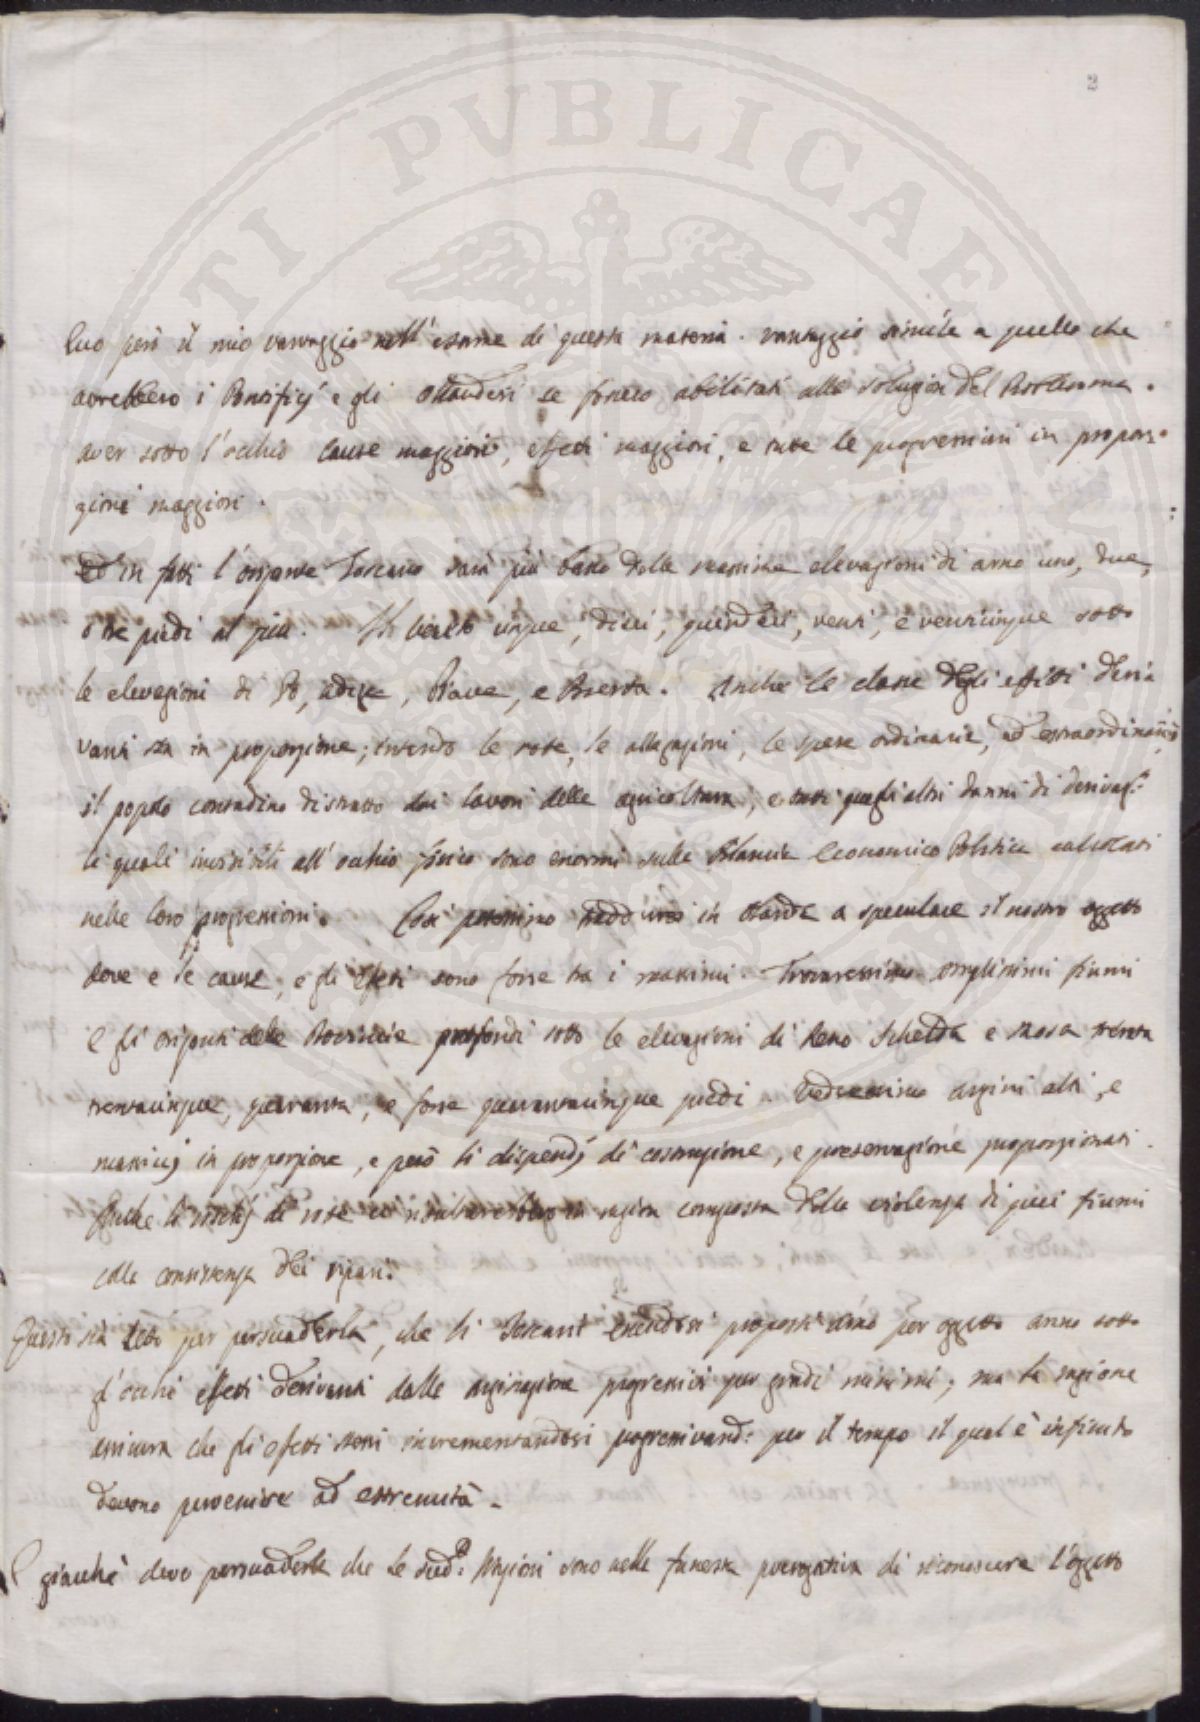 2
però il mio vantaggio nell' esame di questa materia. vantaggio simile a quello che
avrebbero i Pontificj e gli Ollandesi se fossero abilitati alla soluzion del Problema.
aver sotto l'occhio cause maggiori, effetti maggiori, e tutte le progressioni in propor:
zioni maggiori.
in fatti l'orizonte Toscano sarà più basso delle massime elevazioni di Arno uno, due,
o tre piedi al più. Il Veneto cinque, dieci, quindeci, venti, e venticinque sotto
le elevazioni di Pò, Adige, Piave, e Brenta. Anche la classe degli effetti deri
vanti sta in proporzione; intendo le rote, le allagazioni, le spese ordinarie, ed estraordinarie,
il popolo contadino distratto dai lavori delle agricoltura, e tutti quegli altri danni di derivaz:
li quali invisibili all' occhio fisico sono enormi sulle Bilancie Economico Politice calcolati
nelle loro progressioni. Così potessimo in Olanda a speculare il nostro oggetto
dove e le cause, e gli effetti sono forse tra i massimi. Trovaressimo amplissimi fiumi
e gli orizonti delle Provincie profondi sotto le elevazioni di Reno Schelda e Mosa trenta
trentacinque, quaranta, e forse quarantacinque piedi. Vedressimo argini alti, e
massicij in proporzione, e però li dispendj di costruzione, e preservazione proporzionati.
Anche li di rote in ragion composta della violenza di quei fiumi
colla consistenza dei ripari.
Questo sia detto per persuaderla, che li Toscani essendosi proposti per oggetto anno sotto
gl'occhi effetti derivanti dalle arginazione progressivi per gradi minimi; ma la ragione
che gli effetti incrementandosi progressivand: per il tempo il qual è infinito
devono pervenire ad estremità.
E giacchè devo persuaderla che le sud.e Nazioni sono nella funesta prerogativa di riconoscere l'oggetto